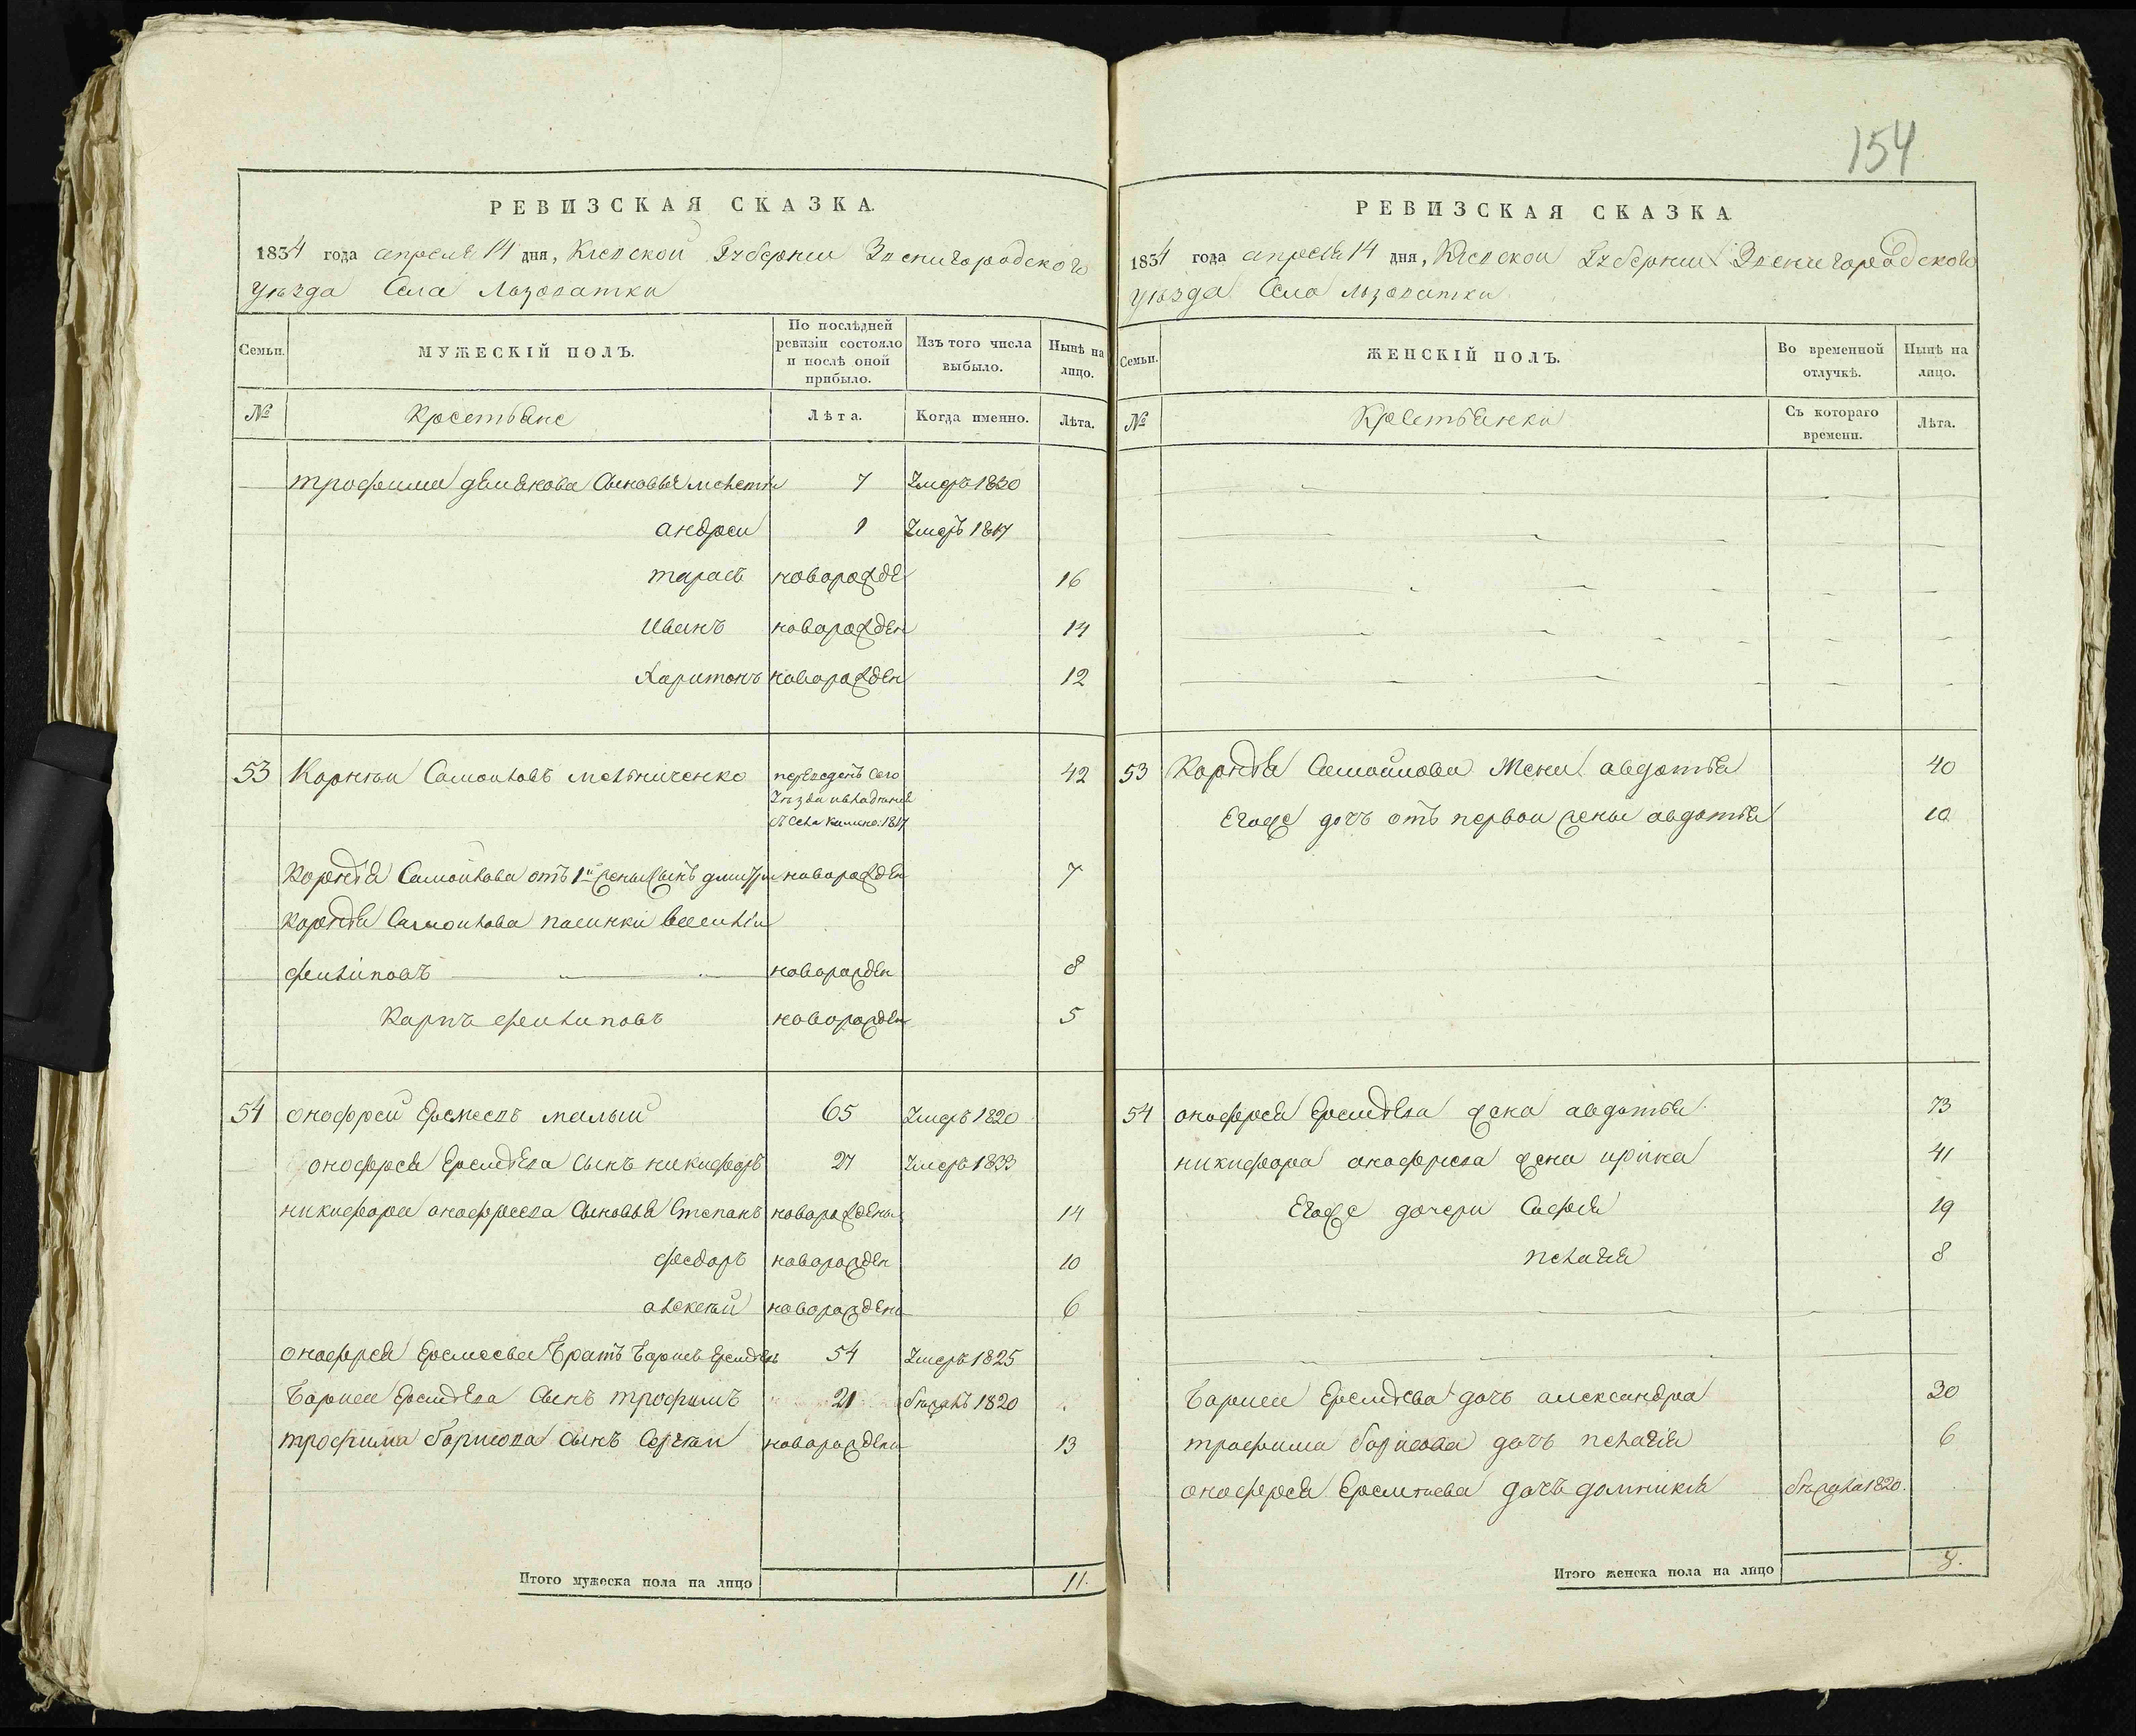 154
РЕВИЗСКАЯ СКАЗКА.
1834 года апреля 14 дня, Киевской Губернии Звенигородского
уѣзда Села Лозоватки
Семьи.
МУЖЕСКІЙ ПОЛЪ.
По послѣдней ревизіи состояло и послѣ оной прибыло.
Изъ того числа выбыло.
Нынѣ на лицо.
№
Крестьяне
Лѣта.
Когда именно.
Лѣта.
трофима сыновья 7 Умеръ 1830
андрей 1 Умеръ 1817
тарасъ новорожде 16
Иванъ новорожден 14
Харитонъ новорожден 12
53 Корнѣй Самойловъ мельниченко переведенъ сего 42
уѣзда
съ села 1817
Корнѣя Самойлова отъ 1й жены сынъ дмитри новорожден 7
Корнѣя Самойлова пасинки василій
филиповъ новорожден 8
Карпъ филиповъ новорожден 5
54 онофрей Еремеевъ малый 65 Умеръ 1820
онофрея Еремѣева сынъ никифоръ 27 Умеръ 1833
никифора онофриева сыновья Степанъ новорождены 14
федоръ новорожден 10
алексѣй новорождены 6
онофрея Еремеева братъ борисъ Еремѣевъ 54 Умеръ 1825
бориса Еремѣева сынъ трофимъ 21 бѣжалъ 1820
трофима борисова сынъ Сергѣй новорожден 13
Итого мужеска пола на лицо 11.
РЕВИЗСКАЯ СКАЗКА
1834 года апреля 14 дня, Киевской Губернии Звенигородского
уѣзда Села Лозоватки
Семьи.
ЖЕНСКІЙ ПОЛЪ.
Во временной отлучкѣ.
Нынѣ на лицо.
№
Крестьянки
Съ котораго времени.
Лѣта.
53 Корнѣя Самойлова Жена авдотья 40
Егоже дочь отъ первой жены авдотья 10
54 онофрея Еремѣева жена авдотья 73
никифора онофриева жена ирина 41
Егоже дочери София 19
пелагия 8
бориса Еремѣева дочь александра 30
трофима борисова дочь пелагія 6
онофрея Еремѣева дочь домникия бѣжала 1820.
Итого женска пола на лицо 8.